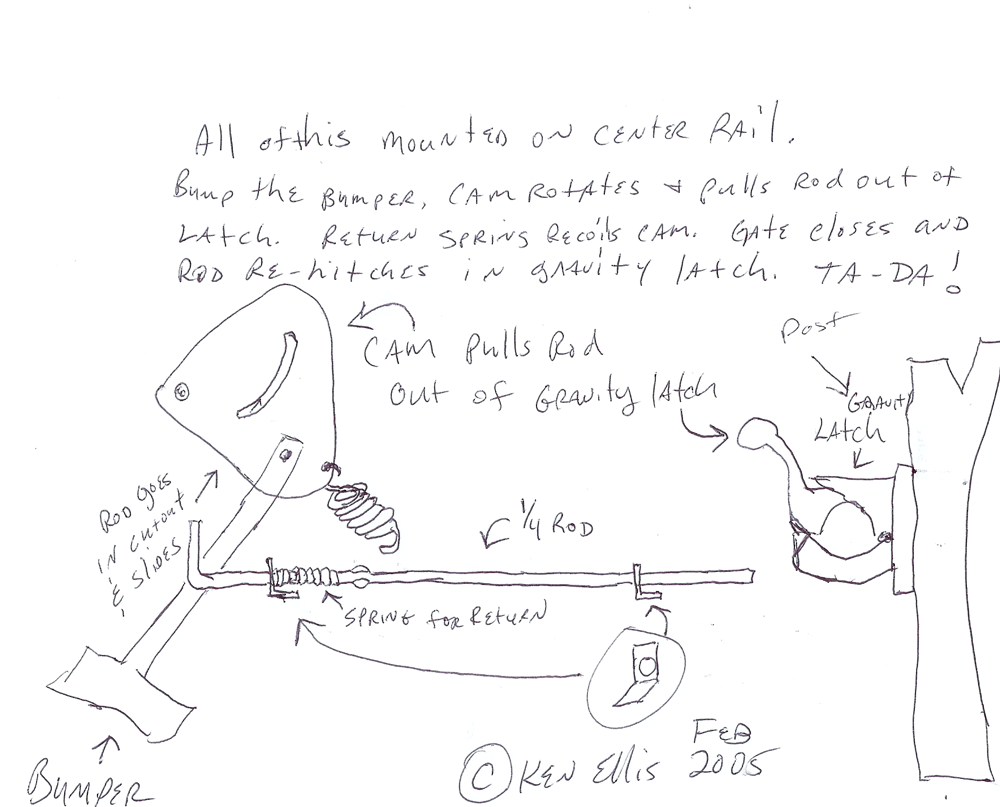 All of this mounted on center rail.
Bump the bumper, cam rotates & pulls rod out of
latch. Return spring recoils cam. Gate closes and
rod re-hitches in gravity latch. TA-DA!
Cam pulls rod
out of gravity latch
Post
Gravity
Latch
Rod goes
in cutout
& slides
1/4 Rod
Spring for return
Bumper
© Ken Ellis Feb
2005